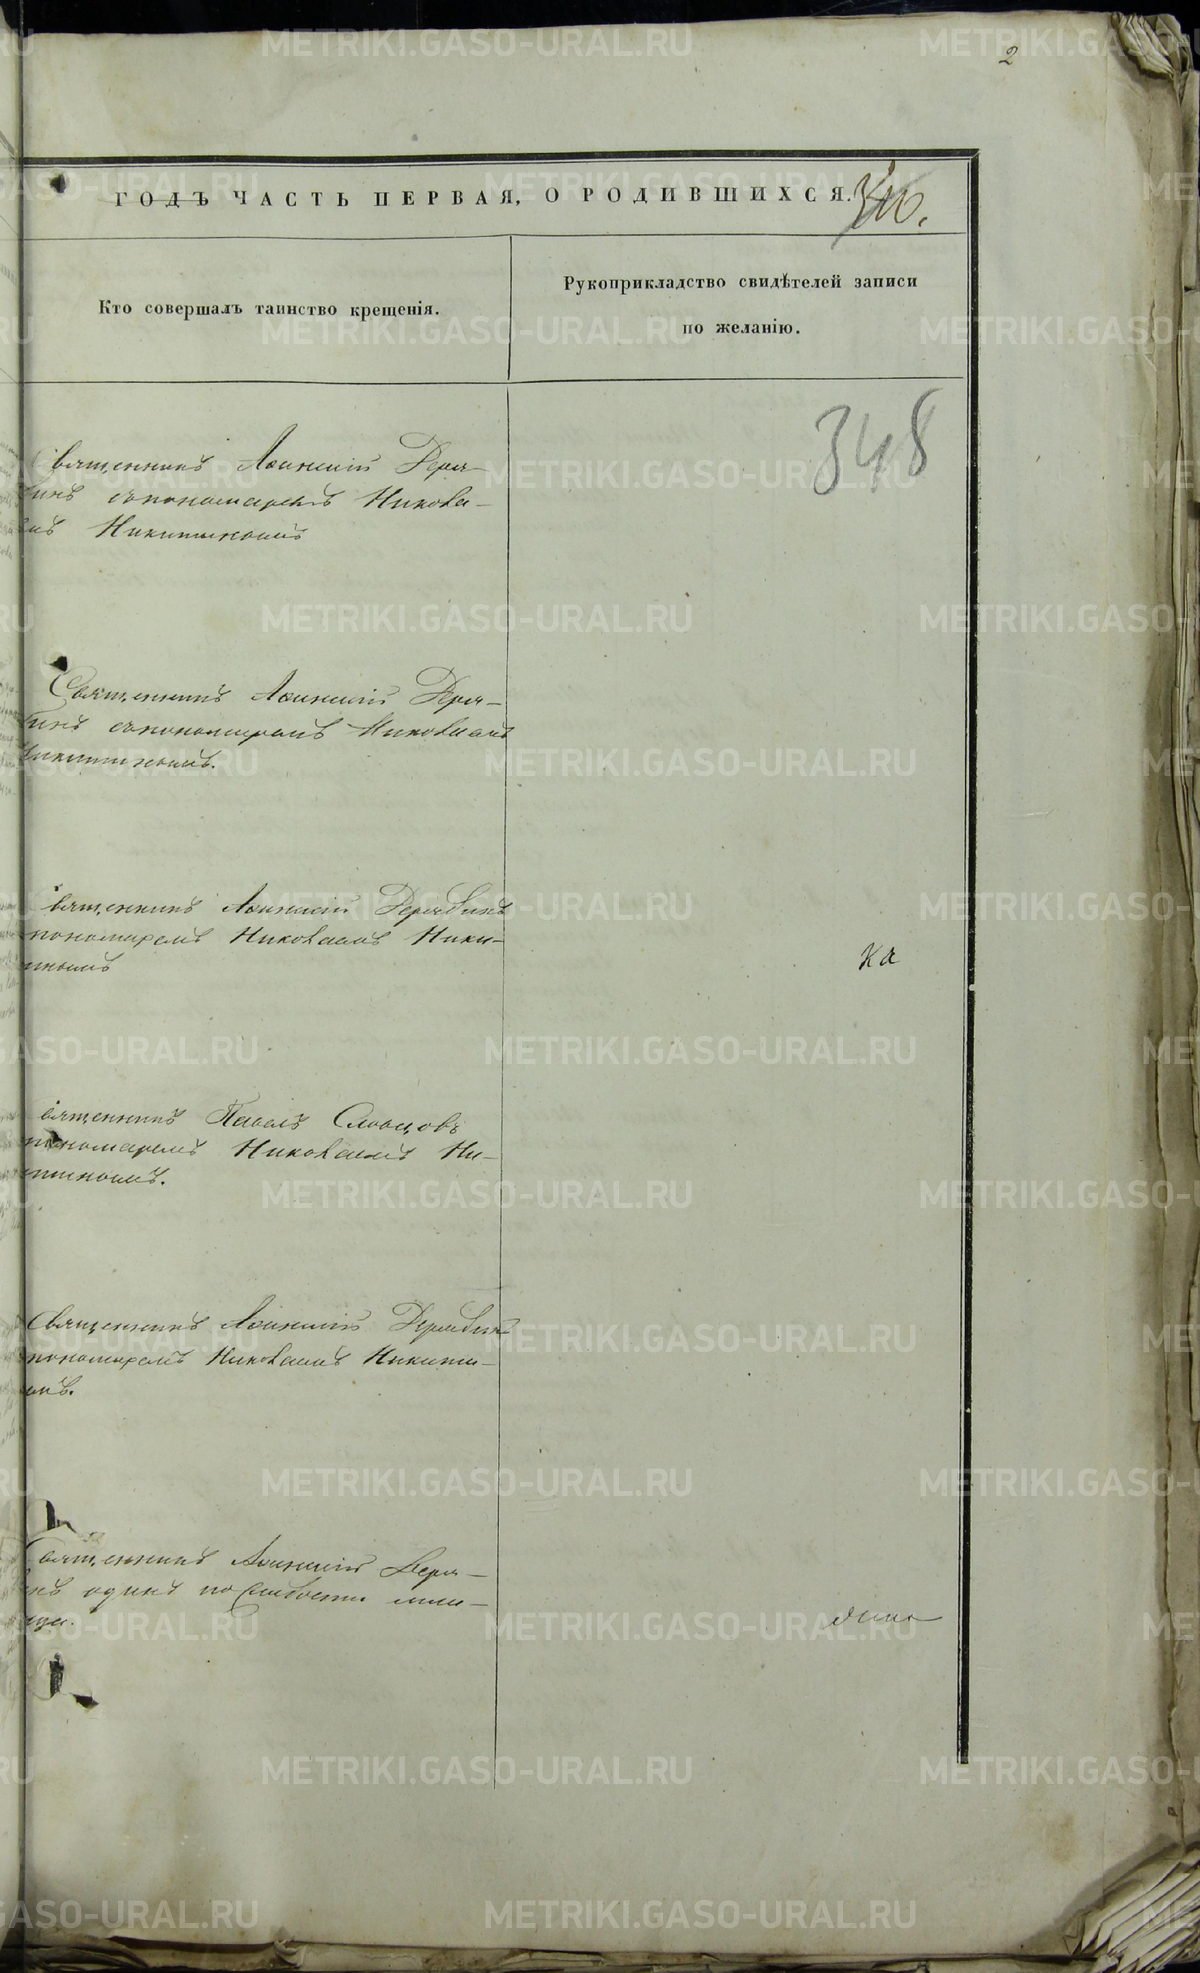 2
ГОДЪ ЧАСТЬ ПЕРВАЯ, О РОДИВШИХСЯ.
Кто совершалъ таинство крещенія.
Рукоприкладство свидѣтелей записи
по желанію.
348
Священникъ Афинаій Деря-
бинъ съ пономаремъ Никола-
емъ Никитинымъ
Священникъ Афинаій Деря-
бинъ съ пономаремъ Николаемъ
Никитинымъ.
Священникъ Афинаій Дерябинъ
пономаремъ Николаемъ Ники-
тинымъ
ка
Священникъ Павелъ Словцовъ
пономаремъ Николаемъ Ни-
китинымъ.
Священникъ Афинаій Дерябинъ
пономаремъ Николаемъ Никити-
нымъ.
Священникъ Афинаій Деря-
бинъ одинъ по слабости мла-
денца.
METRIKI.GASO-URAL.RU